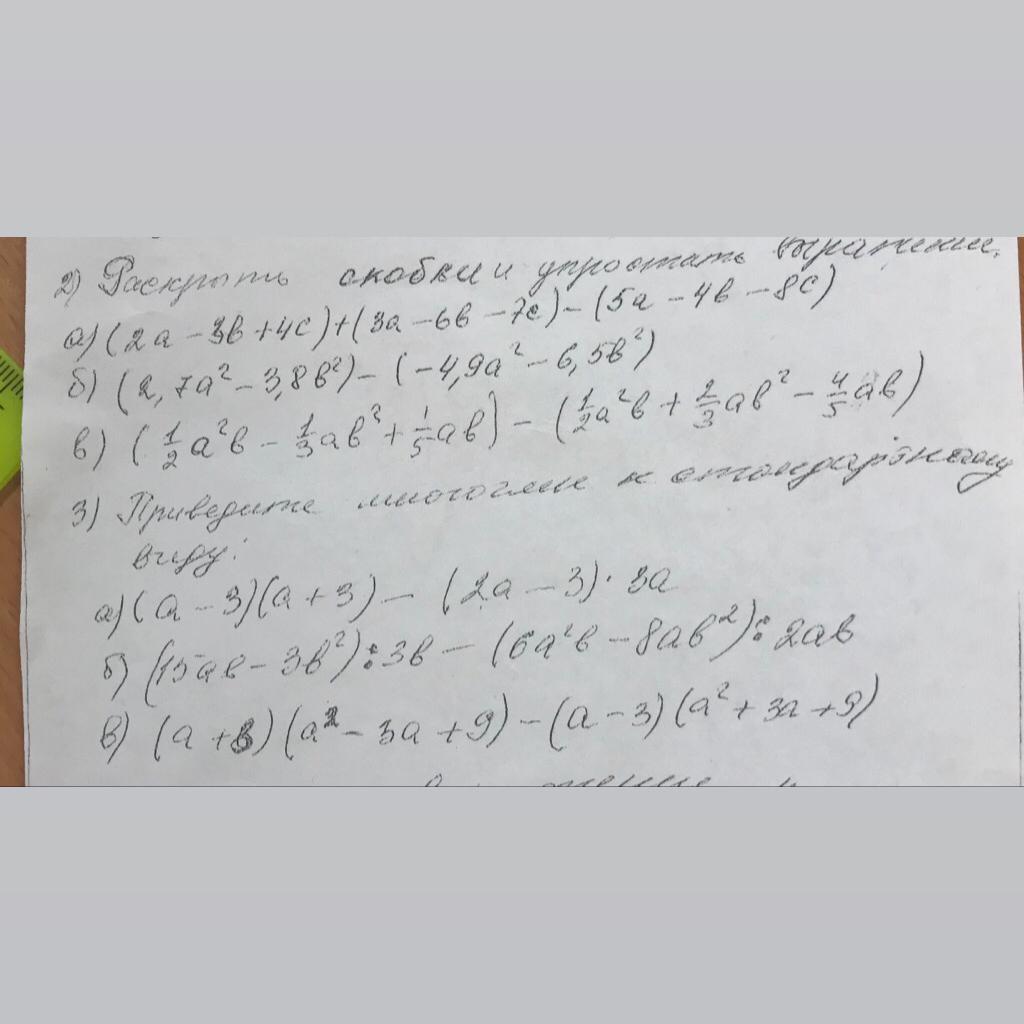 2) Раскрыть скобки и упростать выражении.
а) (2a - 3b + 4c) + (3a - 6b - 7c) - (5a - 4b - 8c)
б) (2,7a² - 3,8b²) - (-4,9a² - 6,5b²)
в) (1/2a²b - 1/3ab² + 1/5ab) - (1/2a²b + 2/3ab² - 4/5ab)
3) Приведите многочлен к стандартному
виду:
а) (a - 3)(a + 3) - (2a - 3) · 3a
б) (15ab - 3b²) : 3b - (6a²b - 8ab²) : 2ab
в) (a + 3)(a² - 3a + 9) - (a - 3)(a² + 3a + 9)